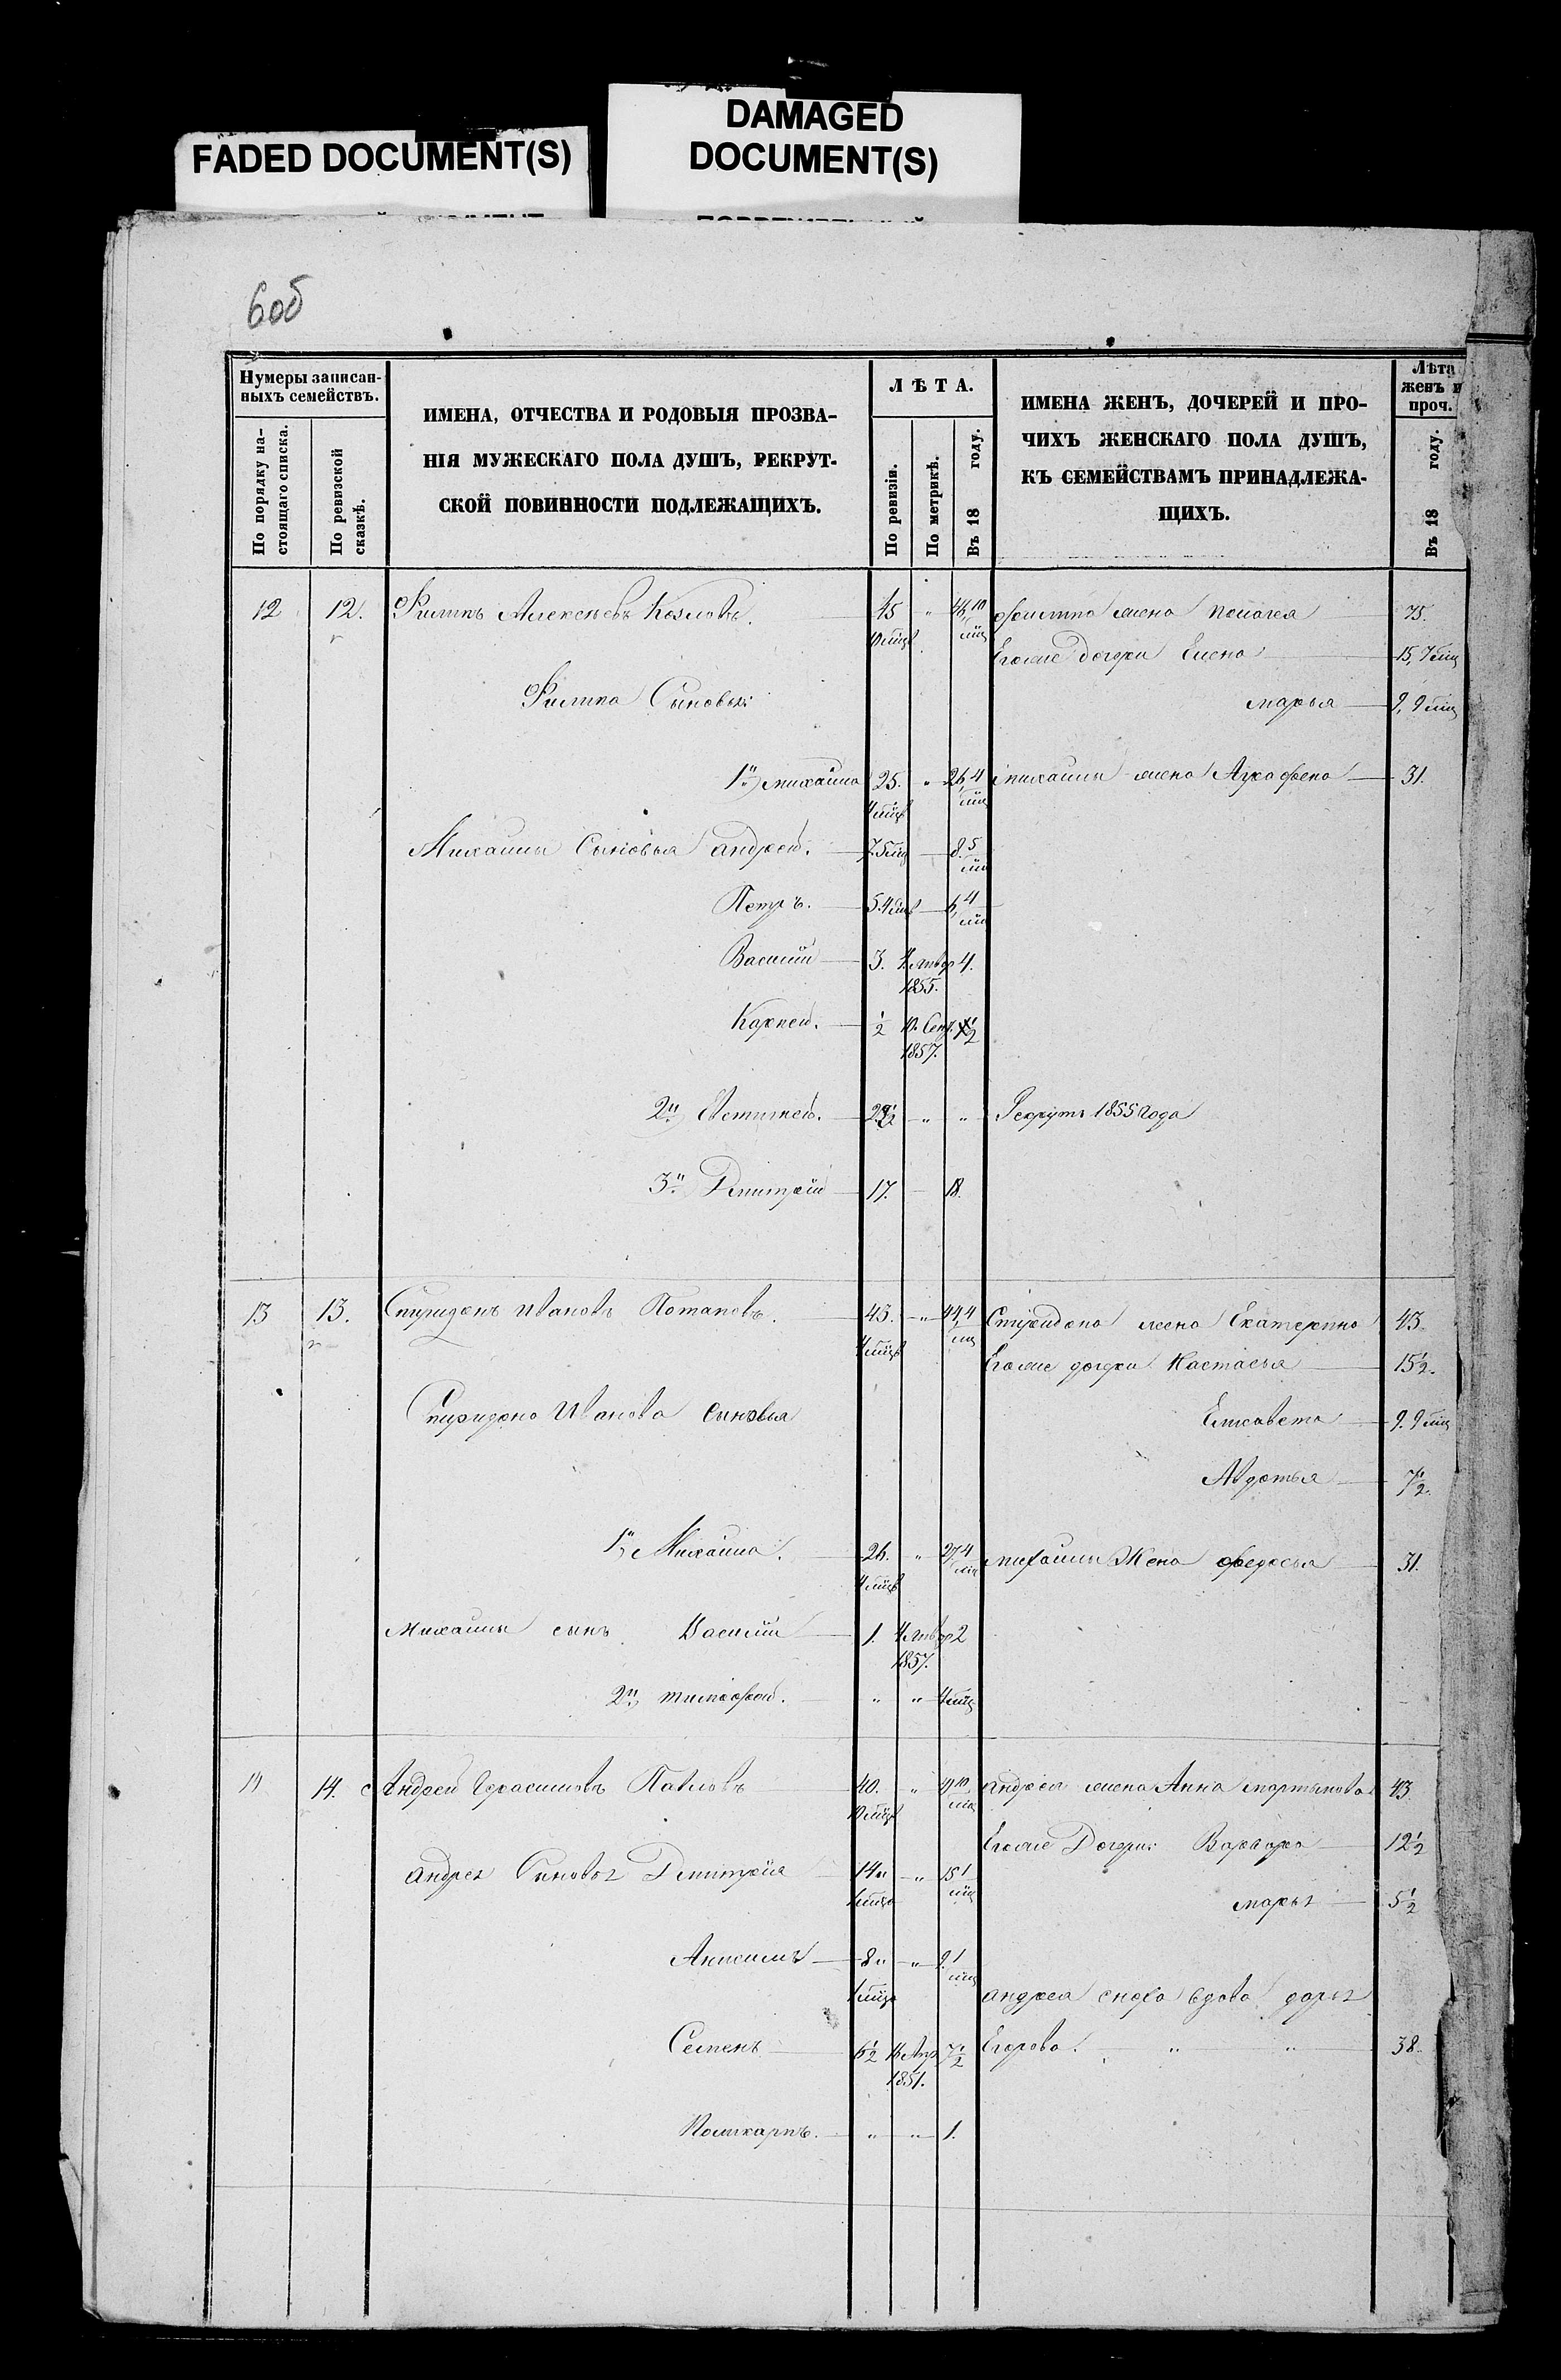 FADED DOCUMENT(S)
DAMAGED
DOCUMENT(S)
6об
Нумеры записан-
ныхъ семействъ.
По порядку на-
стоящаго списка.
По ревизской
сказкѣ.
ИМЕНА, ОТЧЕСТВА И РОДОВЫЯ ПРОЗВА-
НІЯ МУЖЕСКАГО ПОЛА ДУШЪ, РЕКРУТ-
СКОЙ ПОВИННОСТИ ПОДЛЕЖАЩИХЪ.
ЛѢТА.
По ревизіи.
По метрикѣ.
Въ 18 году.
ИМЕНА ЖЕНЪ, ДОЧЕРЕЙ И ПРО-
ЧИХЪ ЖЕНСКАГО ПОЛА ДУШЪ,
КЪ СЕМЕЙСТВАМЪ ПРИНАДЛЕЖА-
ЩИХЪ.
Лѣта
женъ и
проч.
Въ 18 году.
12 12. Филипъ Алексѣевъ Козловъ. 45 " 46, 10 Филипа жена Пелагея
10 мцв мцъ
Егоже дочери Елена 15, 7 мцъ
Филипа Сыновья: марья 9, 9 мцъ
1й михаила 25. " 26, 4 михаилы жена Аграфена 31.
4 мцв мцъ
Михаилы Сыновья андрей. 7. 5 мц 8. 5
мцъ
Петръ. 5. 4 мцв 6, 4
мцъ
Василій 3. Январ 4.
1855.
Карпей. 1/2 10 Сент. 1/2
1857.
2й Евстигней. " " Рекрутъ 1855 года
3й Дмитрій 17. 18.
13 13. Спиридонъ Ивановъ Потаповъ. 43. " 44, 4 Спиридона жена Екатерина 43.
4 мцв мцъ
Егоже дочери Настасья 15 1/2.
Спиридона Иванова сыновья Елисавета 9. 9 мцъ
Авдотья 7 1/2.
1й Михаила. 26. " 27, 4 михаилы Жена федосья 31.
4 мцв мцъ
Михаилы сынъ Василій 1. Январ 2
1857.
2й тимофей. " " 4 мцъ
14. Андрей Герасимовъ Павловъ 40. " 10 андрея жена Анна мартынова 43.
10 мцв мцъ
Егоже Дочери: Варвара 12 1/2
андрея Сыновья Дмитрія 14 " 15 1
1 мцв мцъ
марья 5 1/2
Анисимъ 8 " " 9. 1
1 мцв мцъ
андрея сноха вдова дарья
Семенъ 6 1/2 Апр 7 1/2 Егорова. " " 38.
1851.
Поликарпъ. " " 1.